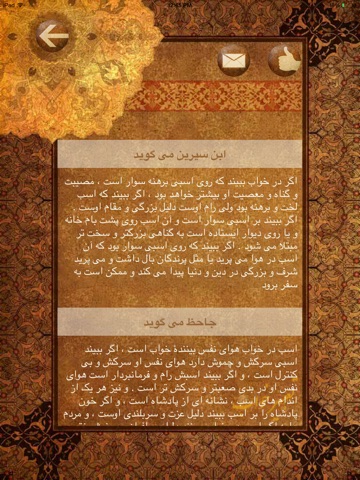 iPad
12:43 PM
ابن سیرین می گوید
اگر در خواب ببیند که روی اسبی برهنه سوار است ، مصیبت
و گناه و معصیت او بیشتر خواهد بود ، اگر ببیند که اسب
لخت و برهنه بود ولی رام اوست دلیل بزرگی و مقام اوست .
اگر ببیند بر اسبی سوار است و آن اسب روی پشت بام خانه
و یا روی دیوار ایستاده است به گناهی بزرگتر و سخت تر
مبتلا می شود . اگر ببیند که روی اسبی سوار بود که آن
اسب در هوا می پرید یا مثل پرندگان بال داشت و می پرید
شرف و بزرگی در دین و دنیا پیدا می کند و ممکن است به
سفر برود
جاحظ می گوید
اسب در خواب هوای نفس بینندهٔ خواب است ، اگر ببیند
اسبی سرکش و چموش دارد هوای او سرکش و بی
کنترل است ، و اگر ببیند اسبش رام و فرمانبردار است هوای
نفس او در بدی ضعیفتر و سرکش تر است . و نیز هر یک از
اندام های اسب ، نشانه ای از پادشاه است ، و اگر خون
پادشاه را بر اسب ببیند دلیل عزت و سربلندی اوست ، و مردم